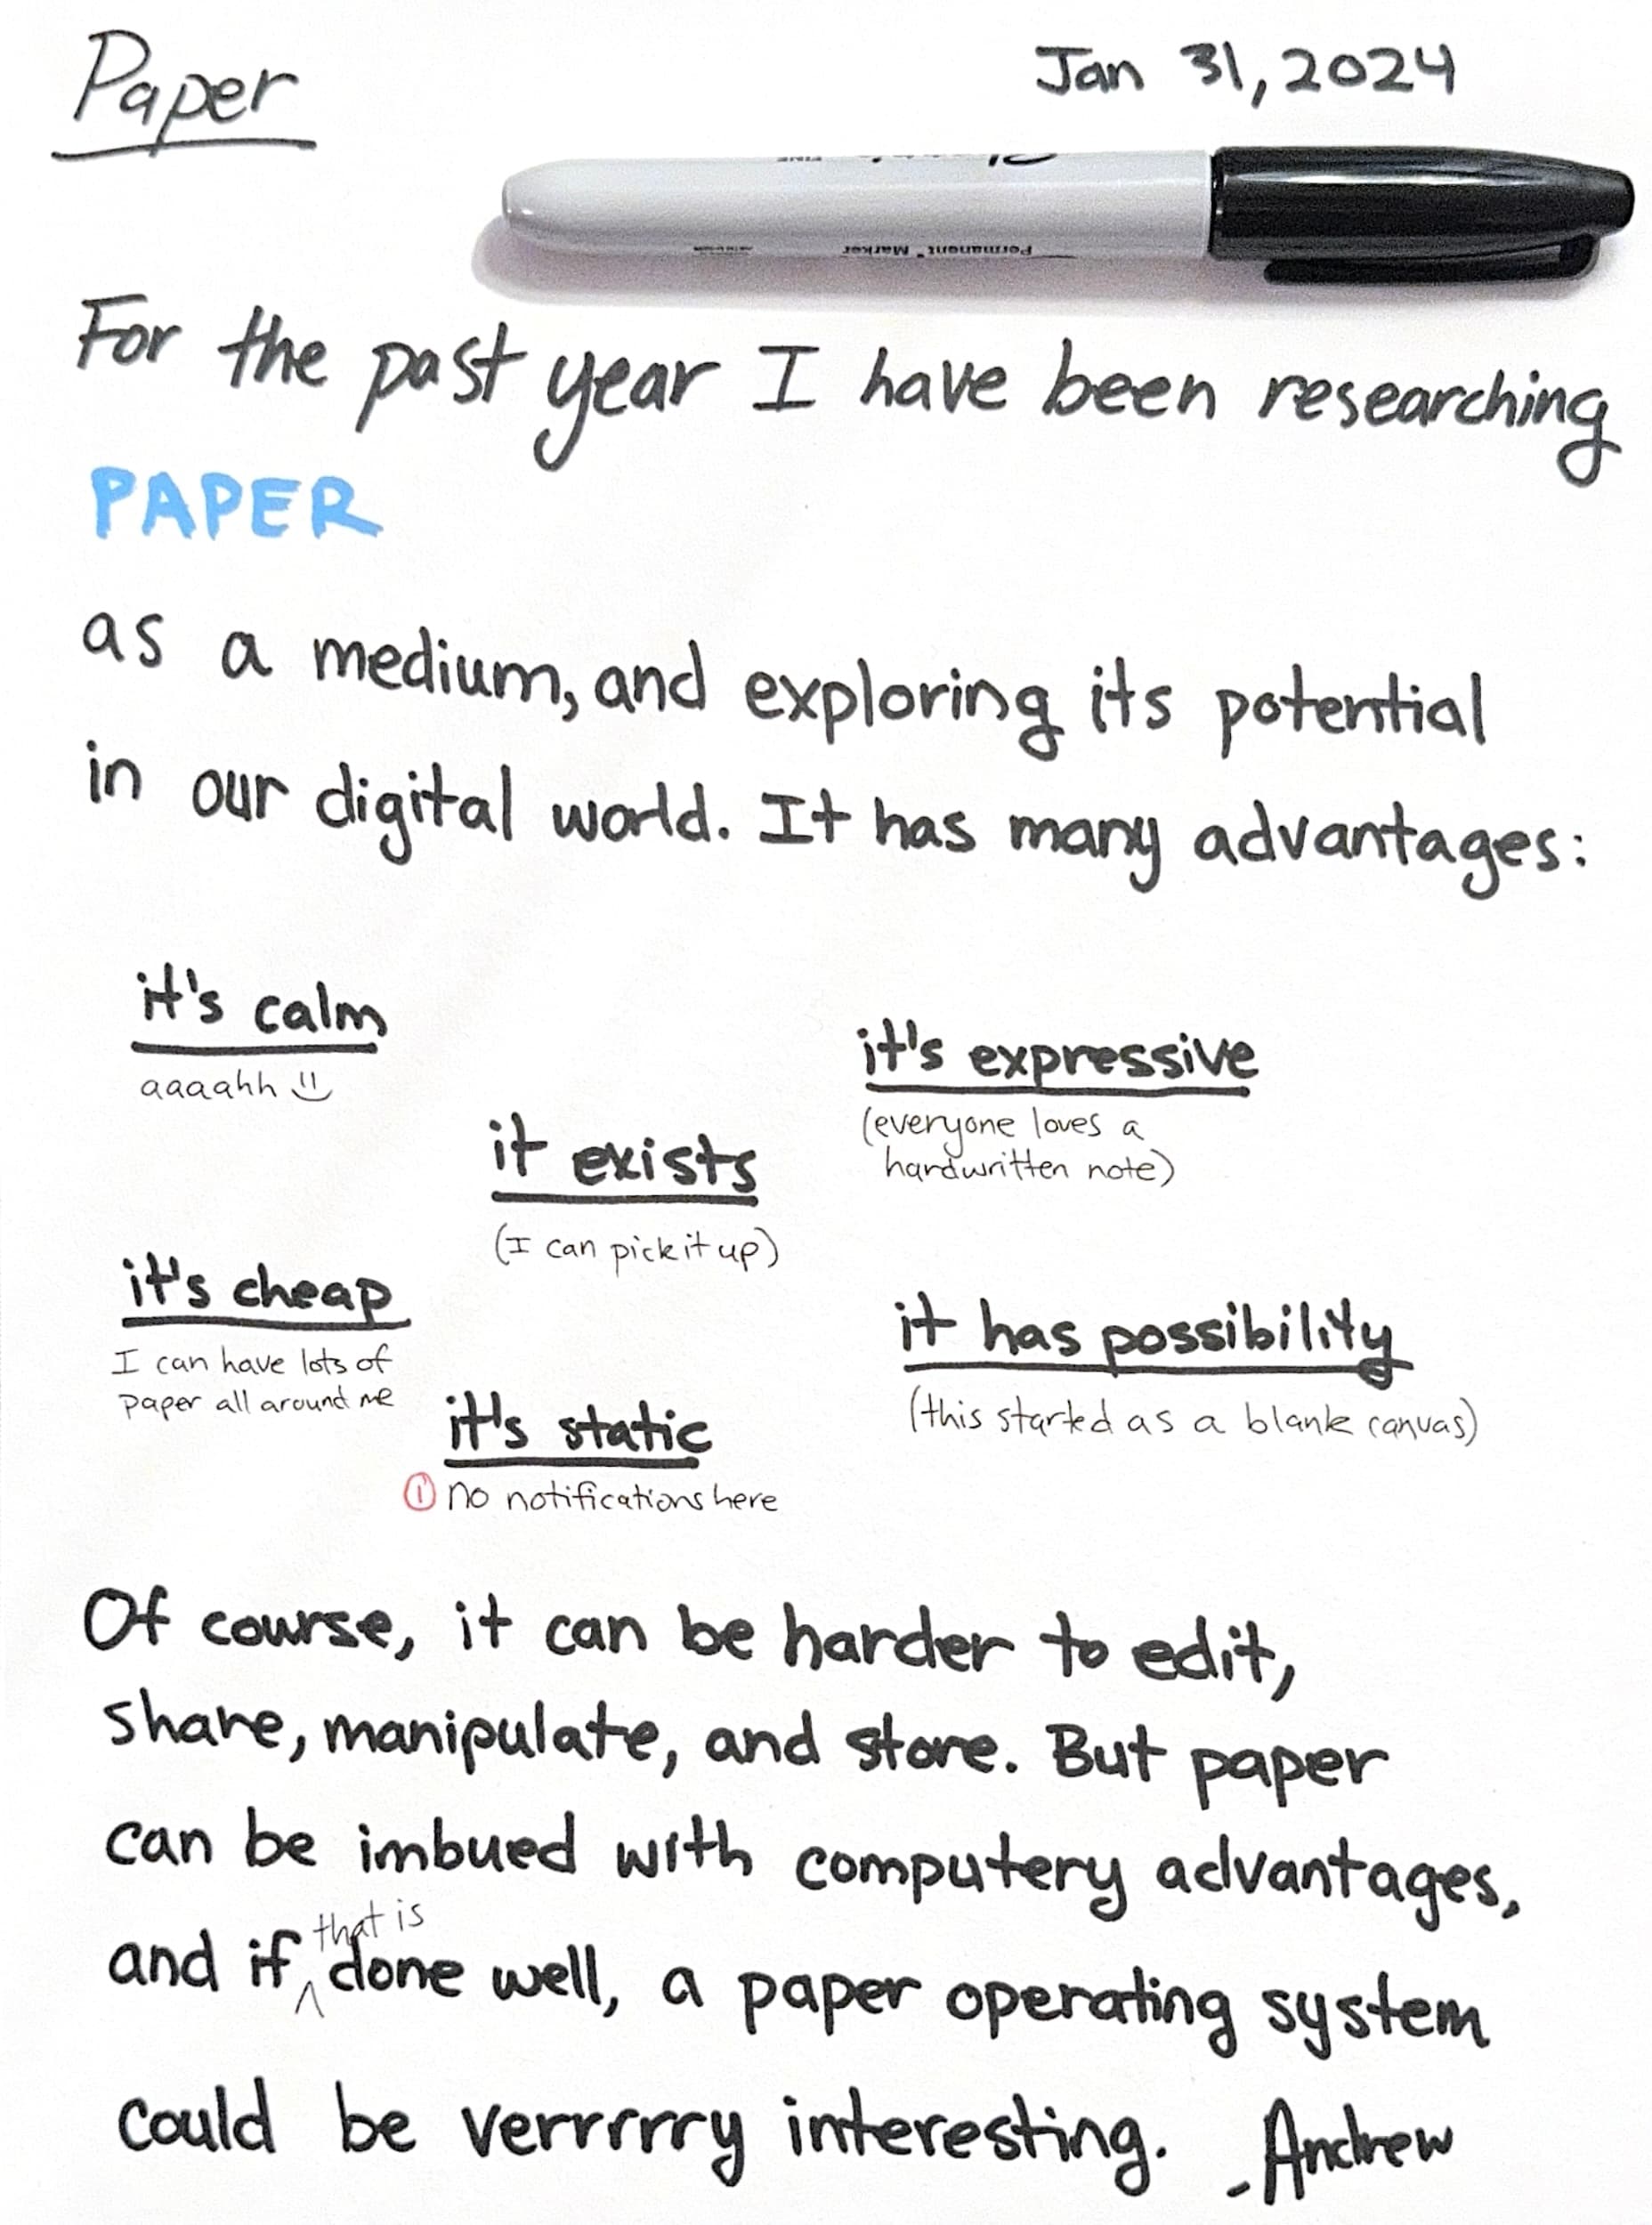 Paper
Jan 31, 2024
FINE
Permanent Marker
For the past year I have been researching
PAPER
as a medium, and exploring its potential
in our digital world. It has many advantages:
it's calm
aaaahh
it's expressive
(everyone loves a
hardwritten note)
it exists
(I can pick it up)
it's cheap
I can have lots of
paper all around me
it has possibility
(this started as a blank canvas)
it's static
1 no notifications here
Of course, it can be harder to edit,
share, manipulate, and store. But paper
can be imbued with computery advantages,
and if that is done well, a paper operating system
could be verrrrrry interesting.
- Andrew